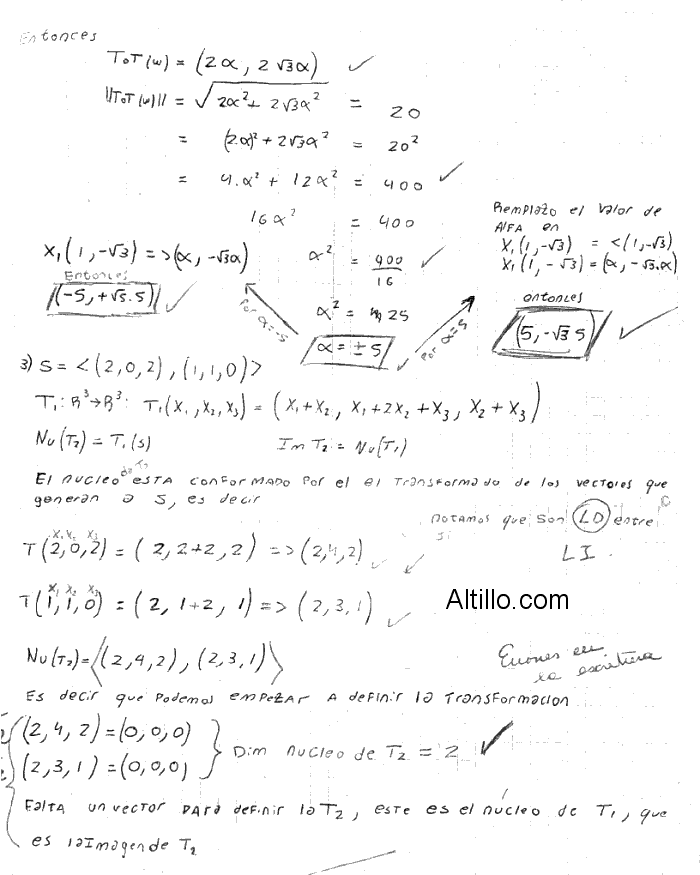 Entonces
ToT(w) = (2α, 2√3α) ✓
||ToT(w)|| = √(2α² + 2√3α²) = 20
= (2α)² + 2√3α² = 20²
= 4.α² + 12α² = 400 ✓
16α² = 400
α² = 400/16 ✓
α² = 25
α = ±5 ✓
Por α=-5
X₁(1,-√3) => (α, -√3α)
Entonces
(-5, +√5.5) ✓
Por α=5
Remplazo el valor de
AlFA en
X₁(1,-√3) = <(1,-√3)
X₁(1,-√3) = (α, -√3.α)
entonces
(5, -√3 5) ✓
3) S = <(2,0,2), (1,1,0)>
T₁: R³→R³: T₁(X₁, X₂, X₃) = (X₁+X₂, X₁+2X₂+X₃, X₂+X₃)
Nu(T₂) = T₁(s) Im T₂ = Nu(T₁)
El nucleo de T₂ ESTA conformado por el el Transformado de los vectores que
generan a S, es decir
notamos que son LD entre
si
LI.
X₁ X₂ X₃
T(2,0,2) = (2, 2+2, 2) => (2,4,2) ✓
X₁ X₂ X₃
T(1,1,0) = (2, 1+2, 1) => (2,3,1) ✓
Altillo.com
Nu(T₂) = <(2,4,2), (2,3,1)>
Errores en
la escritura
Es decir que Podemos empezar A definir la Transformacion
(2,4,2) = (0,0,0)
(2,3,1) = (0,0,0)
Dim nucleo de T₂ = 2 ✓
Falta un vector para definir la T₂, este es el núcleo de T₁, que
es la Imagen de T₂